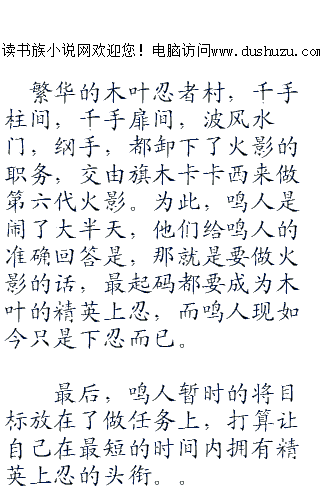 读书族小说网欢迎您！电脑访问www.dushuzu.com
繁华的木叶忍者村，千手
柱间，千手扉间，波风水
门，纲手，都卸下了火影的
职务，交由旗木卡卡西来做
第六代火影。为此，鸣人是
闹了大半天，他们给鸣人的
准确回答是，那就是要做火
影的话，最起码都要成为木
叶的精英上忍，而鸣人现如
今只是下忍而已。
最后，鸣人暂时的将目
标放在了做任务上，打算让
自己在最短的时间内拥有精
英上忍的头衔。。